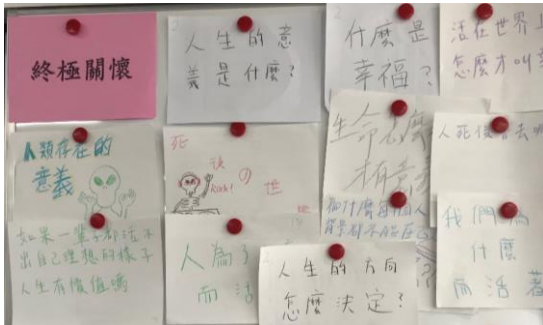 終極關懷
人生的意
義是什麼?
什麼是
幸福?
活在世界上
怎麼才叫
人類存在的
意義
死
後
の
世
生命怎麼
才有意
人死後
去哪
如果一輩子都活不
出自己理想的樣子
人生有價值嗎
人為了
而活
為什麼每個人
人生的方向
怎麼決定?
我們為
什麼
而活著